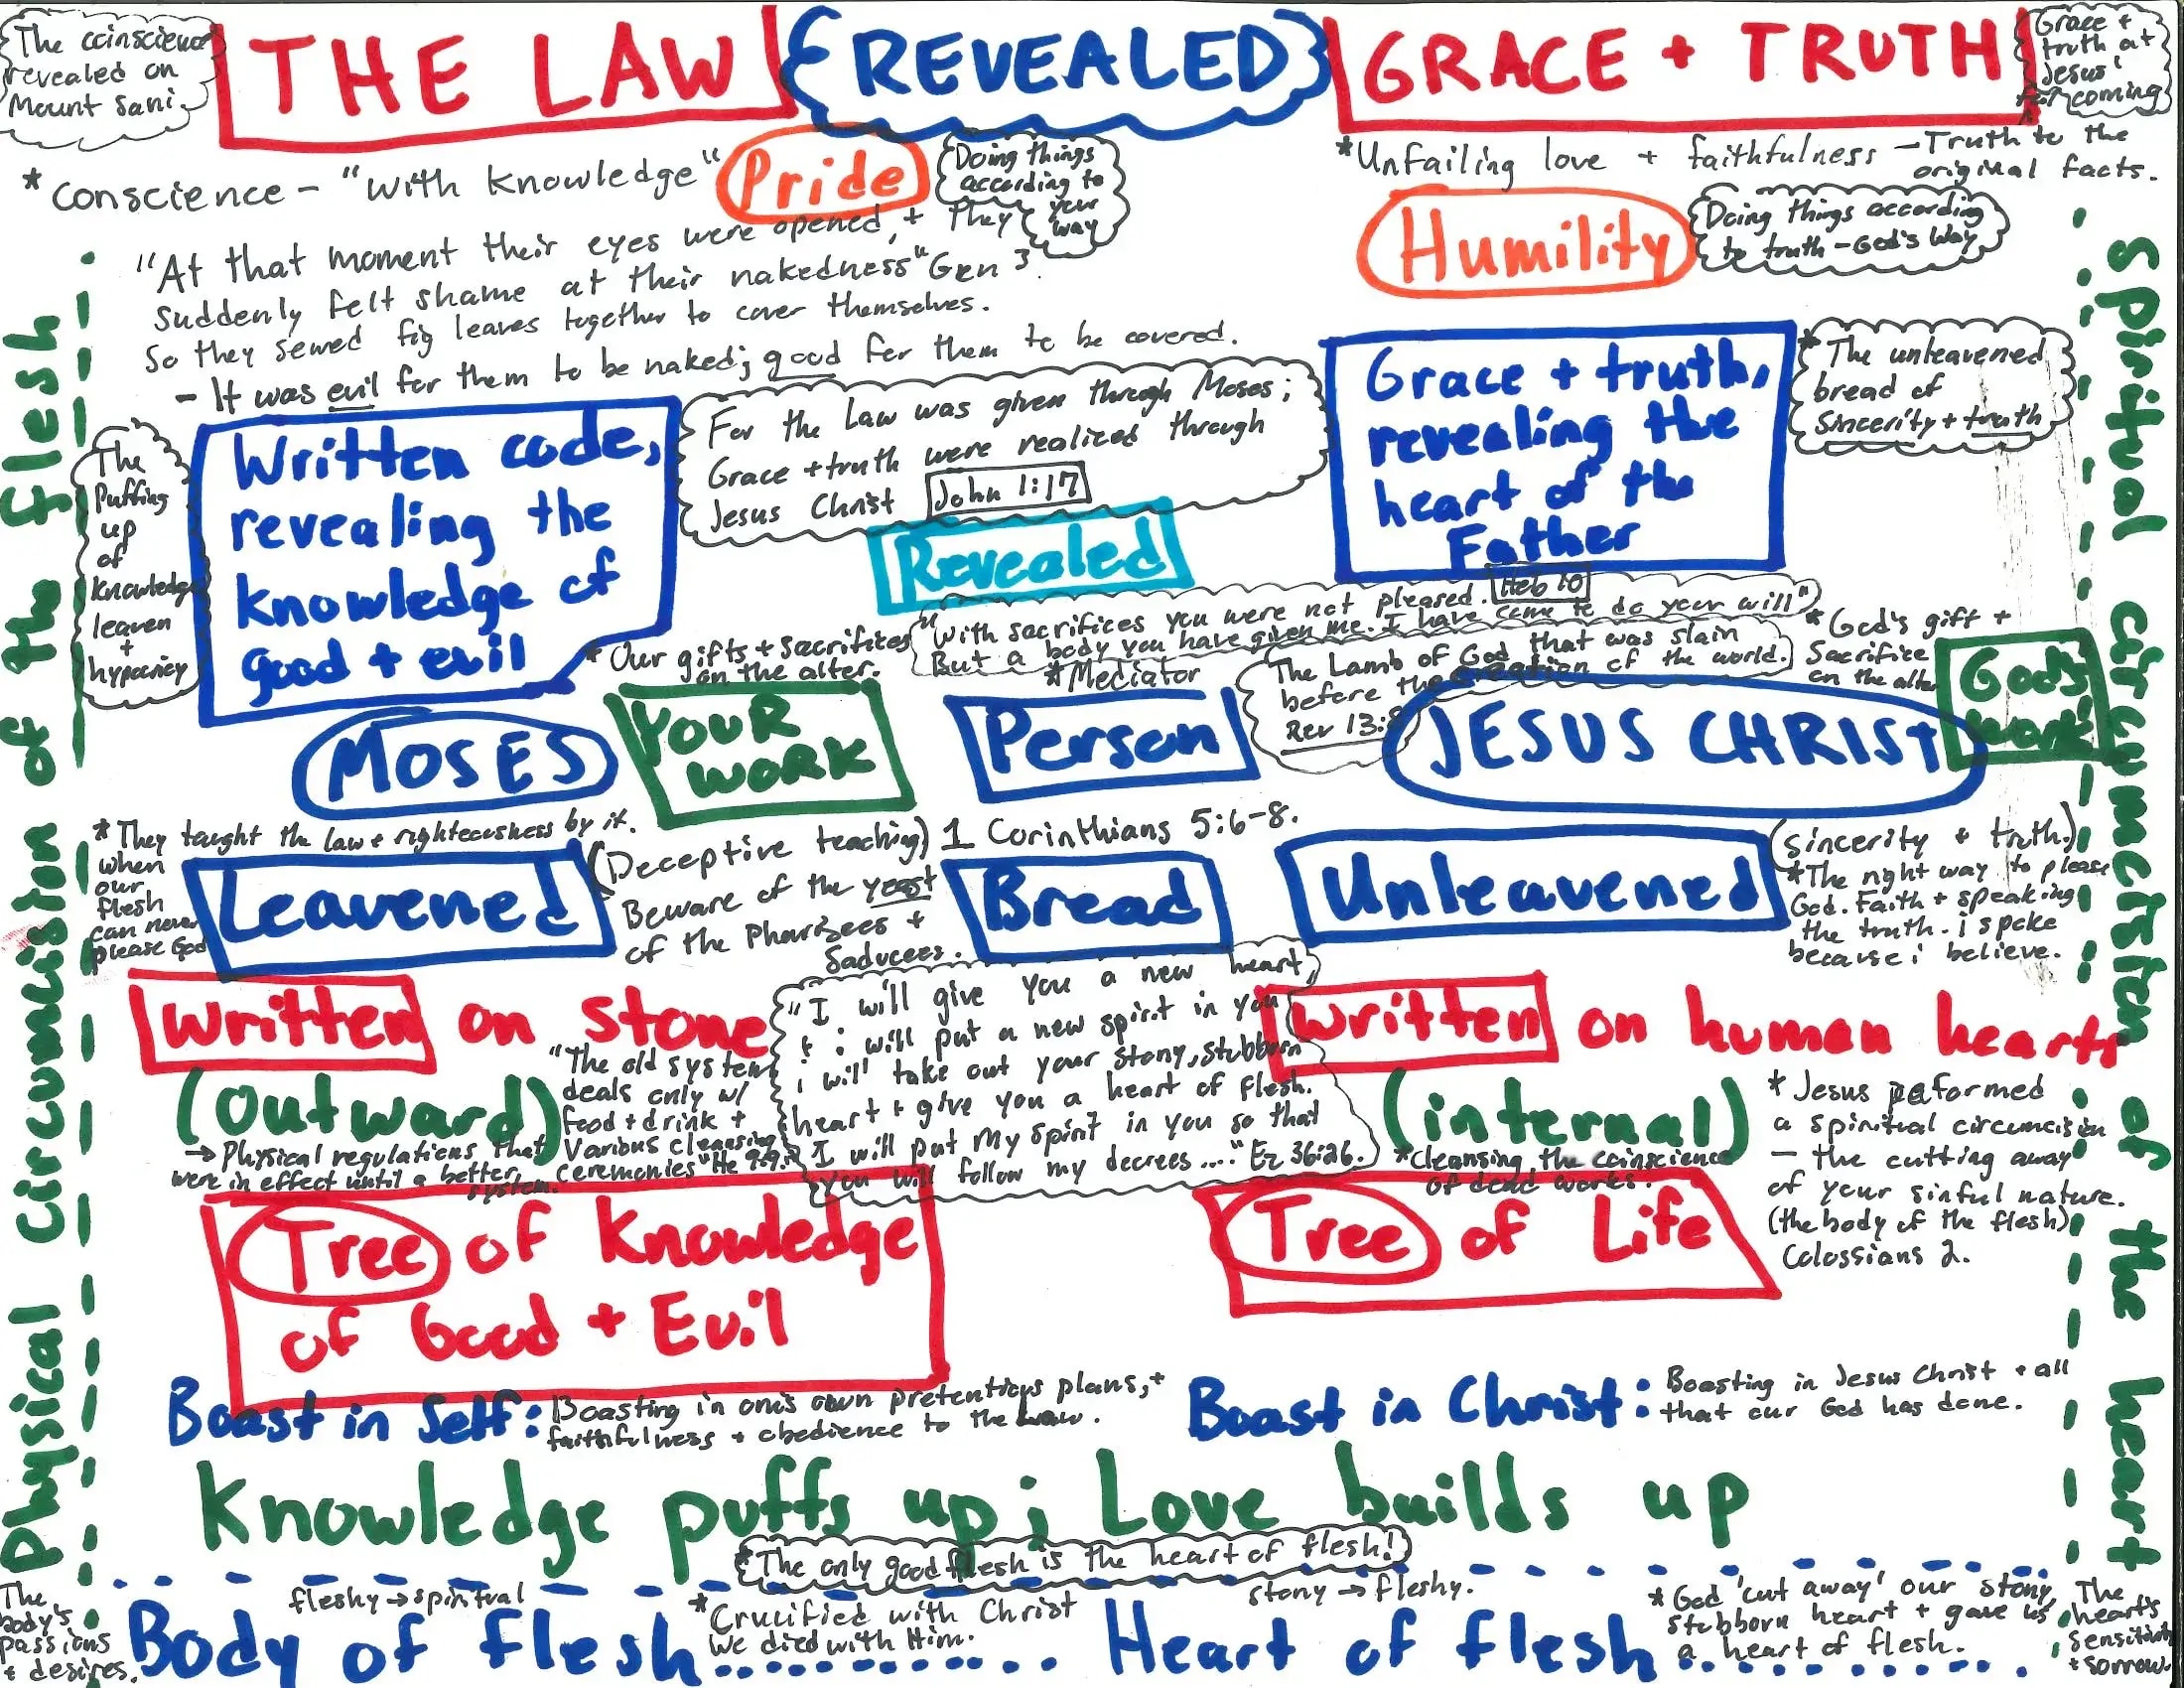 The ccinscience
revealed on
Mount Sani.
THE LAW
{REVEALED}
GRACE + TRUTH
Grace +
truth at
Jesus'
coming
*conscience - "with knowledge"
Pride
Doing things
according to
your
way
*Unfailing love + faithfulness - Truth to the
original facts.
Humility
Doing things according
to truth - God's Way
"At that moment their eyes were opened, + they
suddenly felt shame at their nakedness" Gen 3.
So they sewed fig leaves together to cover themselves.
- It was evil for them to be naked; good for them to be covered.
Physical circumcision of the flesh
Spiritual circumcision of the heart
The
Puffing
up
of
knowledge
leaven
+
hypocricy
Written code,
revealing the
knowledge of
good + evil
For the Law was given through Moses;
Grace + truth were realized through
Jesus Christ John 1:17
Revealed
Grace + truth,
revealing the
heart of the
Father
* The unleavened
bread of
Sincerity + truth
"With sacrifices you were not pleased. Heb 10
But a body you have given me. I have come to do your will"
* Our gifts + sacrifices
on the alter.
*Mediator
The Lamb of God that was slain
before the creation of the world.
Rev 13:8
*God's gift +
Sacrifice
on the alter
God's
work
MOSES
YOUR
WORK
Person
JESUS CHRIST
* They taught the law + righteousness by it.
when
our
flesh
can never
please God
Leavened
(Deceptive teaching)
Beware of the yeast
of the Pharisees +
Saducees.
1 Corinthians 5:6-8.
Bread
Unleavened
(sincerity + truth.)
*The right way to please
God. Faith + speaking
the truth. i spoke
because i believe.
Written on stone
(outward)
→ Physical regulations that
were in effect until a better
system.
"The old system
deals only w/
food + drink +
Various cleansing
ceremonies" He 9:9.
"I will give you a new heart,
+ i will put a new spirit in you
i will take out your stony, stubborn
heart + give you a heart of flesh.
I will put my spirit in you so that
you will follow my decrees...." Ez 36:26.
Written on human hearts
(internal)
*Cleansing the ccinscience
of dead works.
* Jesus performed
a spiritual circumcision
- the cutting away
of your sinful nature.
(the body of the flesh)
Colossians 2.
Tree of Knowledge
of Good + Evil
Tree of Life
Boast in Self: Boasting in one's own pretentious plans, +
faithfulness + obedience to the law.
Boast in Christ: Boasting in Jesus Christ + all
that our God has done.
Knowledge puffs up; Love builds up
*The only good flesh is the heart of flesh!
The
body's
passions
+ desires.
fleshy → spiritual
Body of flesh............
*Crucified with Christ
We died with Him.
stony → fleshy.
Heart of flesh
*God 'cut away' our stony,
stubborn heart + gave us
a heart of flesh.
The
heart's
sensitivity
+ sorrow.